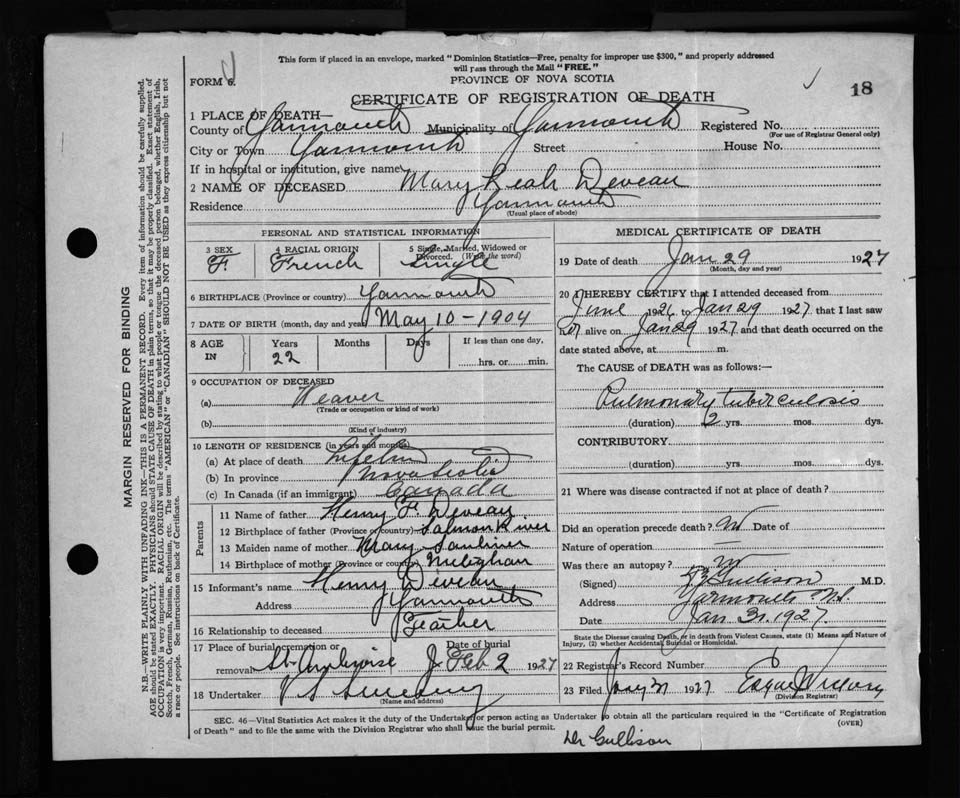 This form if placed in an envelope, marked "Dominion Statistics—Free, penalty for improper use $300," and properly addressed
will pass through the Mail "FREE."
FORM 6.
PROVINCE OF NOVA SCOTIA
18
CERTIFICATE OF REGISTRATION OF DEATH
1 PLACE OF DEATH—
County of Yarmouth Municipality of Yarmouth Registered No.
(For use of Registrar General only)
City or Town Yarmouth Street House No.
If in hospital or institution, give name
2 NAME OF DECEASED Mary Leah Deveau
Residence Yarmouth
(Usual place of abode)
PERSONAL AND STATISTICAL INFORMATION
3 SEX 4 RACIAL ORIGIN 5 Single, Married, Widowed or Divorced. (Write the word)
F. French Single
6 BIRTHPLACE (Province or country) Yarmouth
7 DATE OF BIRTH (month, day and year) May 10-1904
8 AGE IN Years Months Days If less than one day,
22 hrs. or min.
9 OCCUPATION OF DECEASED
(a) Weaver
(Trade or occupation or kind of work)
(b)
(Kind of industry)
10 LENGTH OF RESIDENCE (in years and months)
(a) At place of death Lifetime
(b) In province Nova Scotia
(c) In Canada (if an immigrant) Canada
Parents
11 Name of father Henry F. Deveau
12 Birthplace of father (Province or country) Salmon River
13 Maiden name of mother Mary
14 Birthplace of mother (Province or country) Meteghan
15 Informant's name Henry Deveau
Address Yarmouth
16 Relationship to deceased Father
17 Place of burial, cremation or removal St. Ambroise Date of burial Feb 2 1927
18 Undertaker V S Sweeny
(Name and address)
MEDICAL CERTIFICATE OF DEATH
19 Date of death Jan 29 1927
(Month, day and year)
20 I HEREBY CERTIFY that I attended deceased from
June 1926 to Jan 29 1927. that I last saw
her alive on Jan 29 1927 and that death occurred on the
date stated above, at m.
The CAUSE of DEATH was as follows:—
Pulmonary tuberculosis
(duration) 2 yrs. mos. dys.
CONTRIBUTORY.
(duration) yrs. mos. dys.
21 Where was disease contracted if not at place of death?
Did an operation precede death? No Date of
Nature of operation —
Was there an autopsy? No
(Signed) Gullison M.D.
Address Yarmouth N.S.
Date Jan 31. 1927.
State the Disease causing Death, or in death from Violent Causes, state (1) Means and Nature of
Injury, (2) whether Accidental, Suicidal or Homicidal.
22 Registrar's Record Number
23 Filed Jany 31 1927
(Division Registrar)
SEC. 46—Vital Statistics Act makes it the duty of the Undertaker or person acting as Undertaker to obtain all the particulars required in the "Certificate of Registration
of Death" and to file the same with the Division Registrar who shall issue the burial permit. (OVER)
Dr Gullison
MARGIN RESERVED FOR BINDING
N.B.—WRITE PLAINLY WITH UNFADING INK—THIS IS A PERMANENT RECORD. Every item of information should be carefully supplied.
AGE should be stated EXACTLY. PHYSICIANS should STATE CAUSE OF DEATH in plain terms, so that it may be properly classified. Exact statement of
OCCUPATION is very important. RACIAL ORIGIN will be described by stating to what people or tongue the deceased person belonged, whether English, Irish,
Scotch, French, German, Russian, Ruthenian, etc. The terms "AMERICAN" or "CANADIAN" SHOULD NOT BE USED as they express citizenship but not
a race or people. See instructions on back of Certificate.